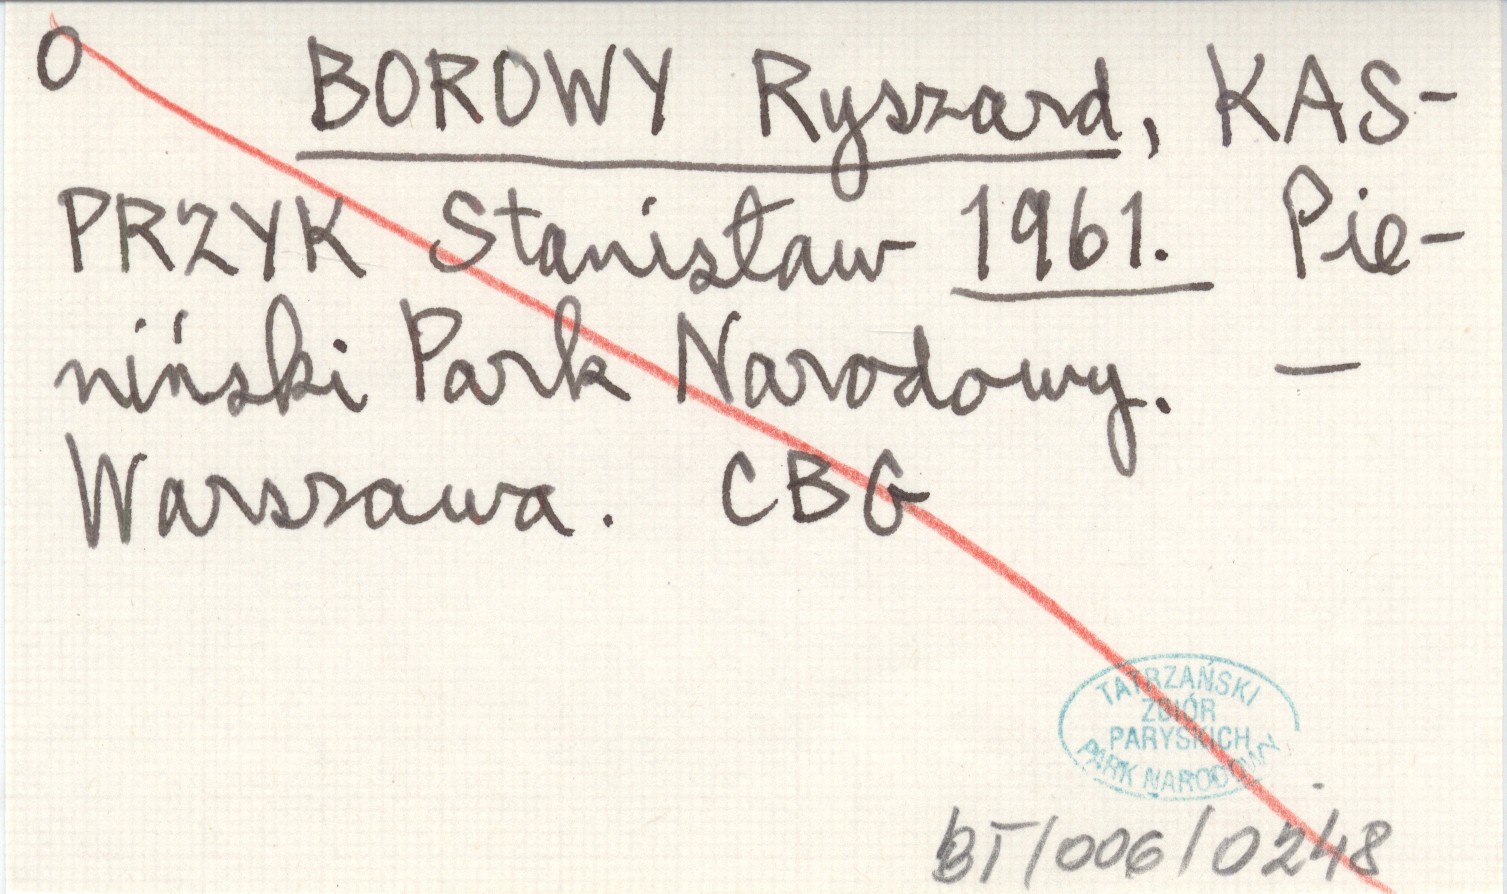 O BOROWY Ryszard, KAS-
PRZYK Stanisław 1961. Pie-
niński Park Narodowy. —
Warszawa. CBG
TATRZAŃSKI
ZBIÓR
PARYSKICH
PARK NARODOWY
BT/006/0248